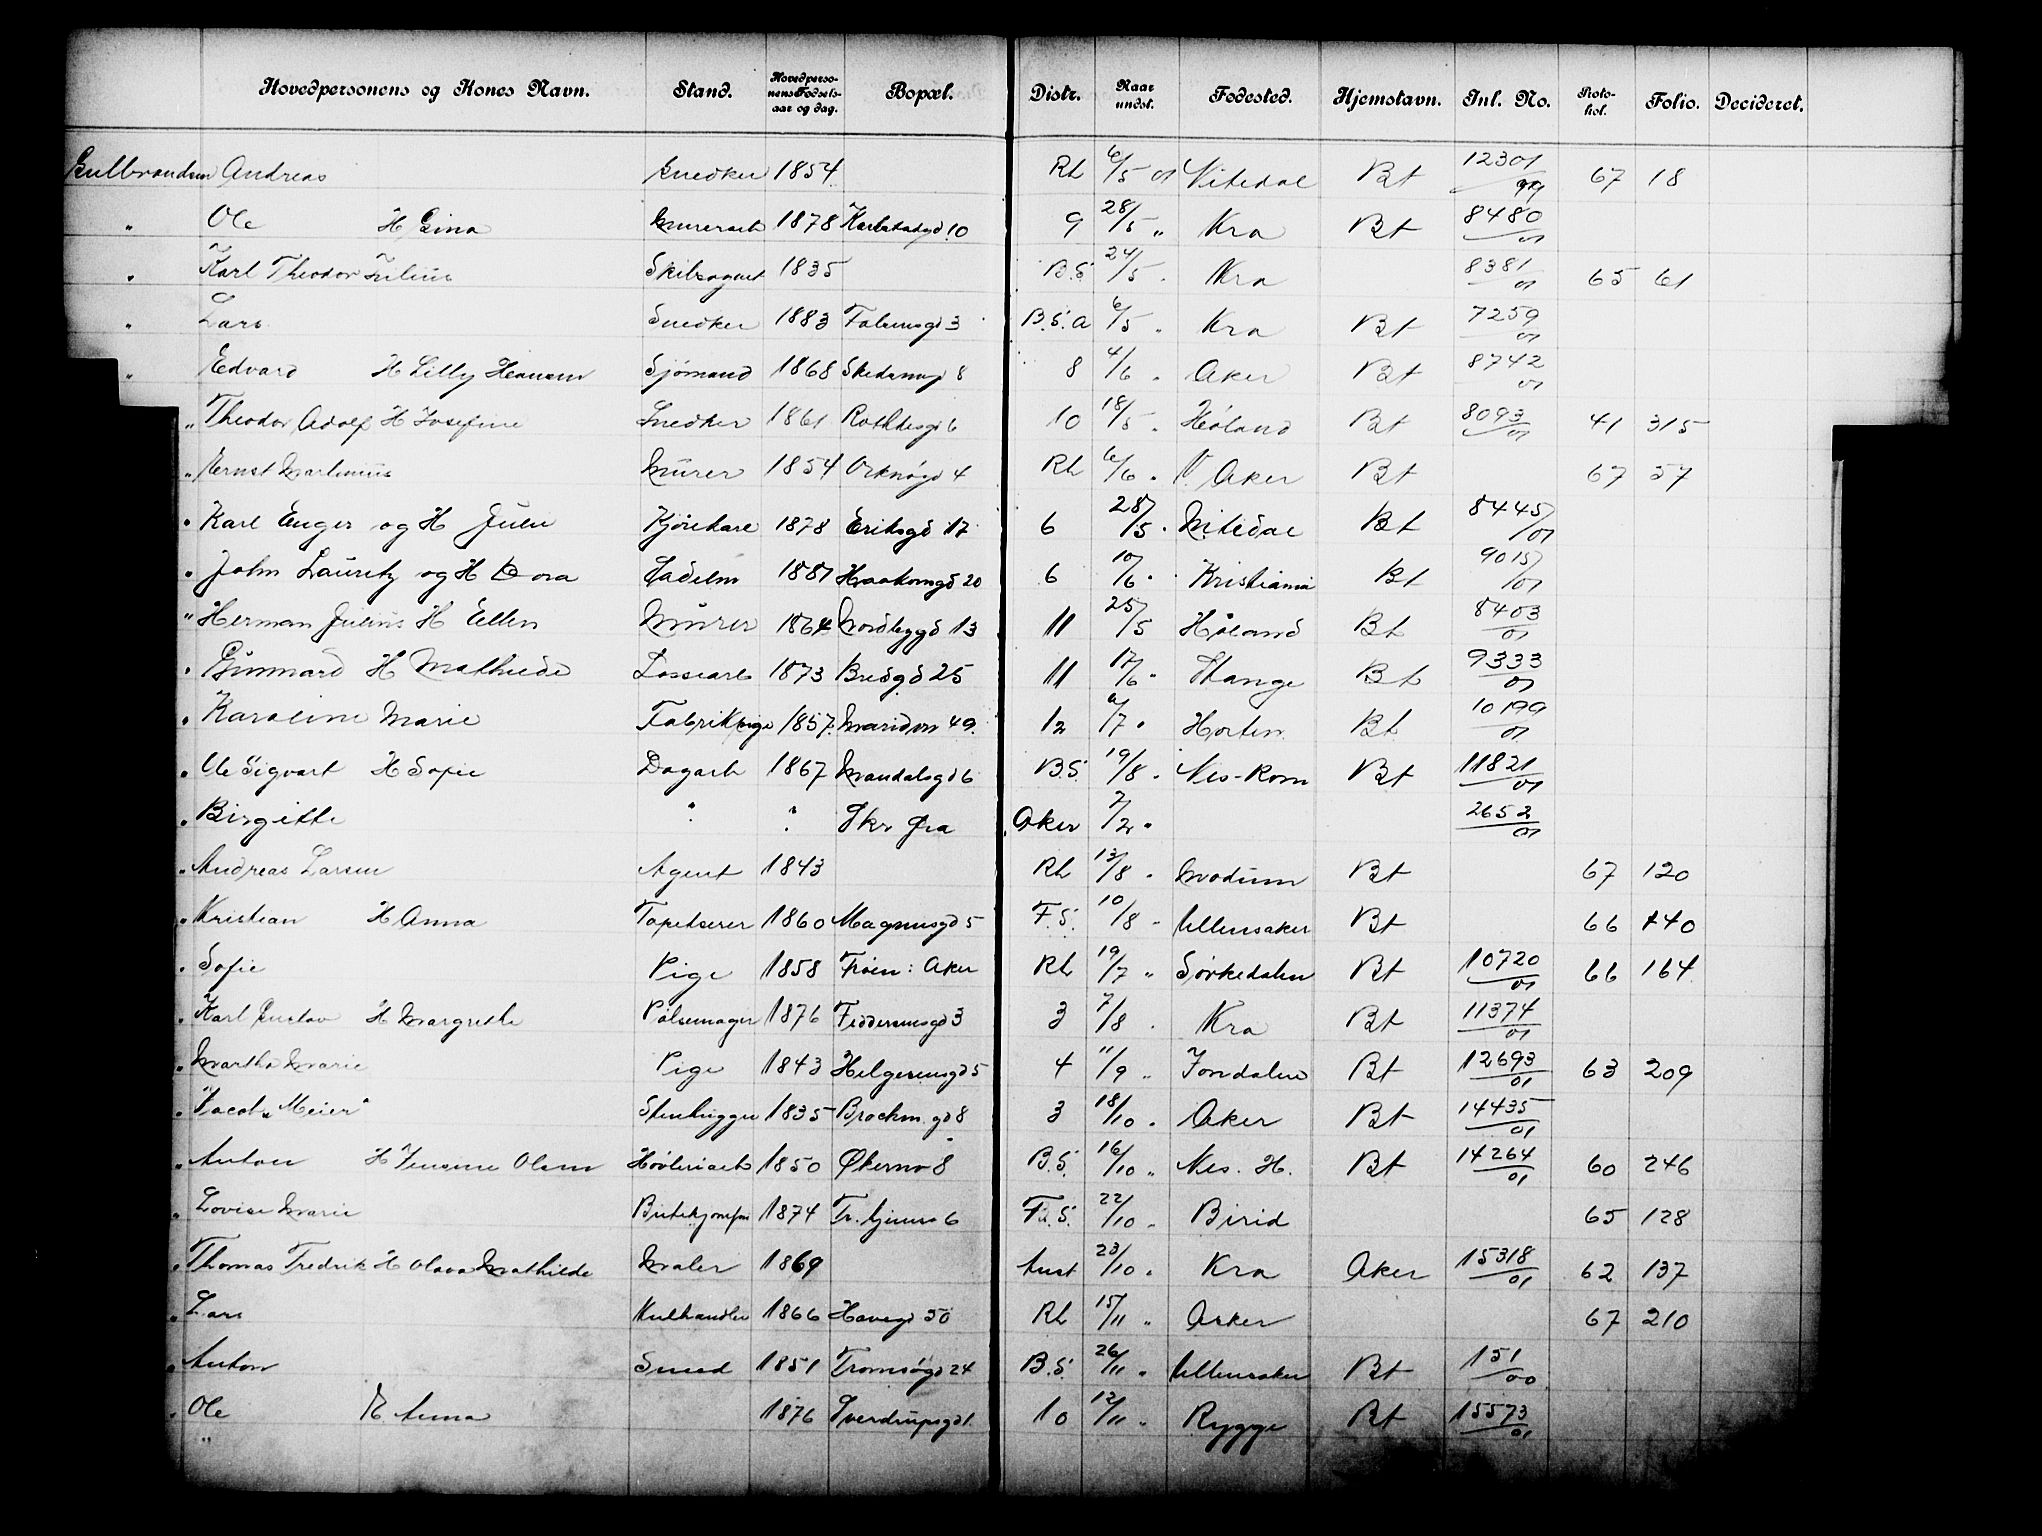 Hovedpersonens og Kones Navn. Stand. Hovedpersonens Fødselsaar og dag. Bopæl. Distr. Naar undst. Fødested. Hjemstavn. Inl. No. Protokol. Folio. Decideret.
Gulbrandsen Andreas Snedker 1854 Rh 6/5 01 Nitedal Bt 12301/99 67 18
" Ole H Gina Murerarb 1878 Karlstadgd 10 9 28/5 " Kra Bt 8480/01
" Karl Theodor Julius 1835 B.S. 24/5 " Kra 8381/01 65 61
" Lars Snedker 1883 Falsensgd 3 B.S.a 6/5 " Kra Bt 7259/01
" Edvard H Lilly Hansen Sjømand 1868 Skedsmogd 8 8 4/6 " Aker Bt 8742/01
" Theodor Adolf H Josefine Snedker 1861 Rathkesgd 6 10 18/5 " Høland Bt 8093/01 41 315
" Ernst Martinius Murer 1854 Orknøgd 4 Rh 6/6 " V. Aker Bt 67 57
" Karl Enger og H Julie Kjørekarl 1878 Eriksgd 17 6 28/5 " Nitedal Bt 8445/01
" John Lauritz og H Dora 1881 Haakonsgd 20 6 10/6 " Kristiania Bt 9015/01
" Herman Julius H Ellen Murer 1864 Nordbygd 13 11 25/5 Høland Bt 8403/01
" Gunnard H Mathilde Lossearb 1873 Bredgd 25 11 17/6 " Stange Bt 9333/01
" Karoline Marie Fabrikpige 1857 Maridvn 49 12 6/7 " Horten Bt 10199/01
" Ole Sigvart H Sofie Dagarb 1867 Mandalsgd 6 B.S. 19/8 " Nes-Rom Bt 11821/01
" Birgitte " " Skr fra Aker 7/2 " 2652/01
" Andreas Larsen Agent 1843 Rh 13/8 " Modum Bt 67 120
" Kristian H Anna Tapetserer 1860 Magnusgd 5 F.S. 10/8 " Ullensaker Bt 66 140
" Sofie Pige 1858 Frøen: Aker Rh 19/7 " Sørkedalen Bt 10720/01 66 164
" Karl Gustav H Margrethe Pølsemager 1876 Feddersensgd 3 3 7/8 " Kra Bt 11374/01
" Martha Marie Pige 1843 Helgesensgd 5 4 11/9 " Jondalen Bt 12693/01 63 209
" Jacob "Meier" Stenhugger 1835 Brochm.gd 8 3 18/10 " Aker Bt 14435/01
" Anton H Jensine Olsen Høvleriarb 1850 Økernv 8 B.S. 16/10 " Nes. H. Bt 14264/01 60 246
" Lovise Marie 1874 Tr.hjemsv 6 F.S. 22/10 " Birid 65 128
" Thomas Fredrik H Olava Mathilde Maler 1869 Aust 23/10 " Kra Aker 15318/01 62 137
" Lars Kulhandler 1866 Havegd 50 Rh 15/11 " Asker 67 210
" Anton Smed 1851 Tromsøgd 24 B.S. 26/11 " Ullensaker Bt 151/00
" Ole E Anna 1876 Sverdrupsgd 1. 10 12/11 " Rygge Bt 15573/01
"